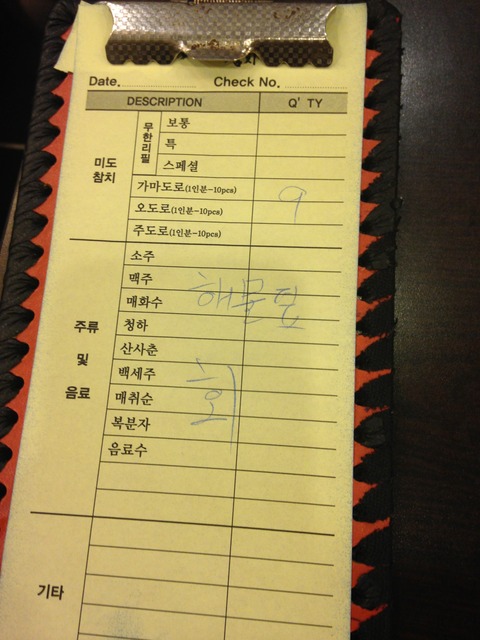 Date. Check No.
DESCRIPTION Q' TY
미도 참치
무한리필
보통
특
스페셜
가마도로(1인분-10pcs)
오도로(1인분-10pcs) 9
주도로(1인분-10pcs)
주류 및 음료
소주
맥주
매화수 해물
청하
산사춘
백세주
매취순 회
복분자
음료수
기타